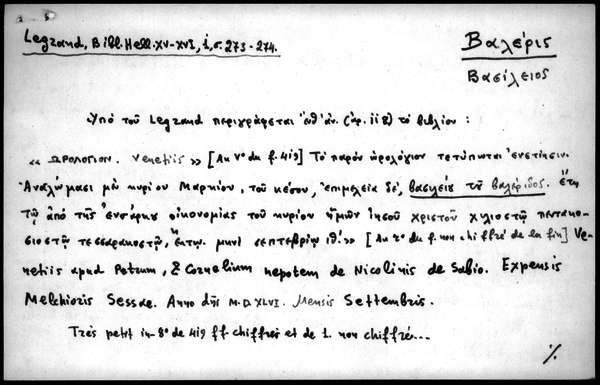 Legrand, Bibl. Hell. XV-XVI, 1, σ. 273-274.
Βαλέρις
Βασίλειος
Ὑπὸ τοῦ Legrand περιγράφεται ὑπ' ἀν. (ἀρ. 118) τὸ βιβλίον :
« ΩΡΟΛΟΓΙΟΝ. Venetiis » [Au vº du f. 419] Τὸ παρὸν ὡρολόγιον τετύπωται Ἐνετίησιν.
Ἀναλώμασι μὲν κυρίου Μαρκίου, τοῦ κέσου, ἐπιμελεία δέ, βασιλείου τοῦ βαλέριδος. ἔτη
τῷ ἀπὸ τῆς ἐνσάρκου οἰκονομίας τοῦ κυρίου ἡμῶν ἰησοῦ χριστοῦ χιλιοστῷ πεντακο-
σιοστῷ τεσσαρακοστῷ, ἕκτῳ. μηνὶ σεπτεβρίῳ ιθ! » [Au rº du f. non chiffré de la fin] Ve-
netiis apud Petrum, & Cornelium nepotem de Nicolinis de Sabio. Expensis
Melchioris Sessae. Anno dñi M.D.XLVI. Mensis Settembris.
Très petit in-8º de 419 ff. chiffrés et de 1. non chiffré...
./.